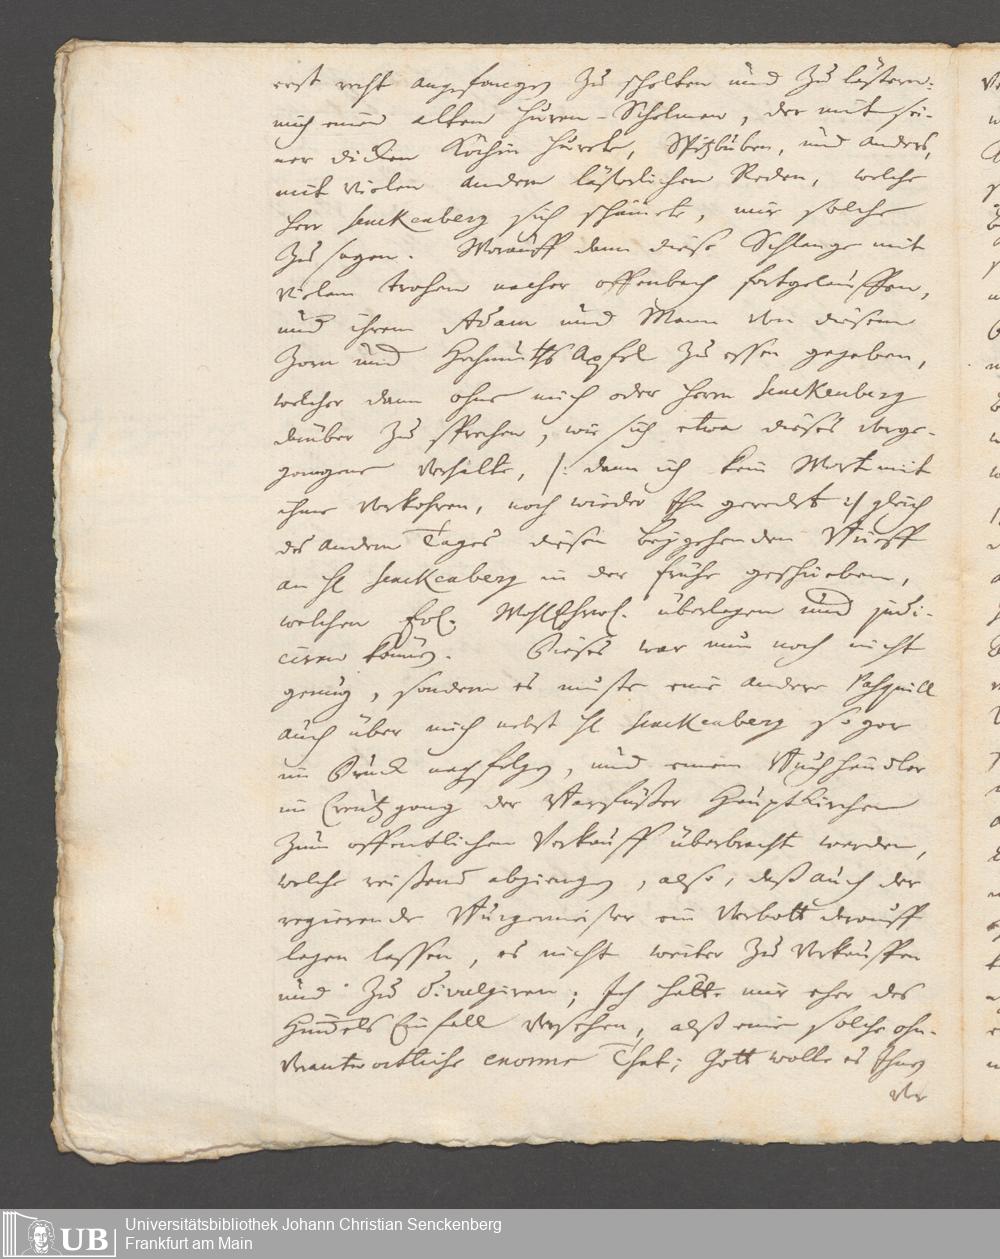 erst recht angefangen zu schelten und zu lästern:
mich einen alten Huren-Schelmen, der mit sei-
ner dicken Köchin hurete, Spitzbuben, und anders,
mit vielen andern lästerlichen Reden, welche
Herr Senckenberg sich schämete, mir solche
zu sagen. Worauff dann diese Schlange mit
vielem trohen nacher Offenbach fortgelauffen,
und ihrem Adam und Mann von diesem
Zorn und Hochmuths Apfel zu essen gegeben,
welcher dann ohne mich oder Herrn Senckenberg
darüber zu sprechen, wie sich etwa dieses verge-
gangene verhalte, /: dann ich kein Wort mit
ihme verkohren, noch wieder Ihn geredet :/ gleich
des andern Tages diesen beygehenden Brieff
an H Senckenberg in der frühe geschrieben,
welchen Ew. WohlEhrw. überlegen und judi-
ciren können. Dieses war nun noch nicht
genug, sondern es muste eine andere Pasquill
auch über mich nebst H Senckenberg so gar
im Druck nachfolgen, und einem Buchhändler
im Creutzgang der Barfüßer Hauptkirchen
zum offentlichen Verkauff überbracht werden,
welche reißend abgiengen, also, daß auch der
regierende Burgermeister ein Verbott darauff
legen lassen, es nicht weiter zu verkauffen
und zu divulgiren; Ich hätte mir eher des
Himmels Einfall versehen, alß eine solche ohn-
verantwortliche enorme That; Gott wolle es Ihnen
ver
Universitätsbibliothek Johann Christian Senckenberg
Frankfurt am Main
UB